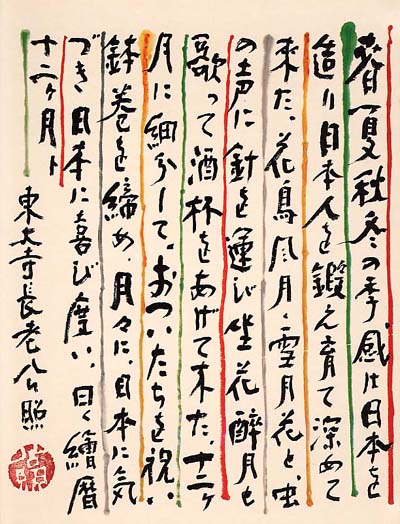 春夏秋冬の季感は日本を
造り日本人を鍛え育て深めて
来た、花鳥風月・雪月花と、虫
の声に針を運び坐花醉月を
歌って酒杯をあげて来た、十二ヶ
月に細分して、おついたちを祝い
鉢巻を締め、月々に、日本に気
づき日本に喜び度い、曰く繪暦
十二ヶ月ト
東大寺長老公照